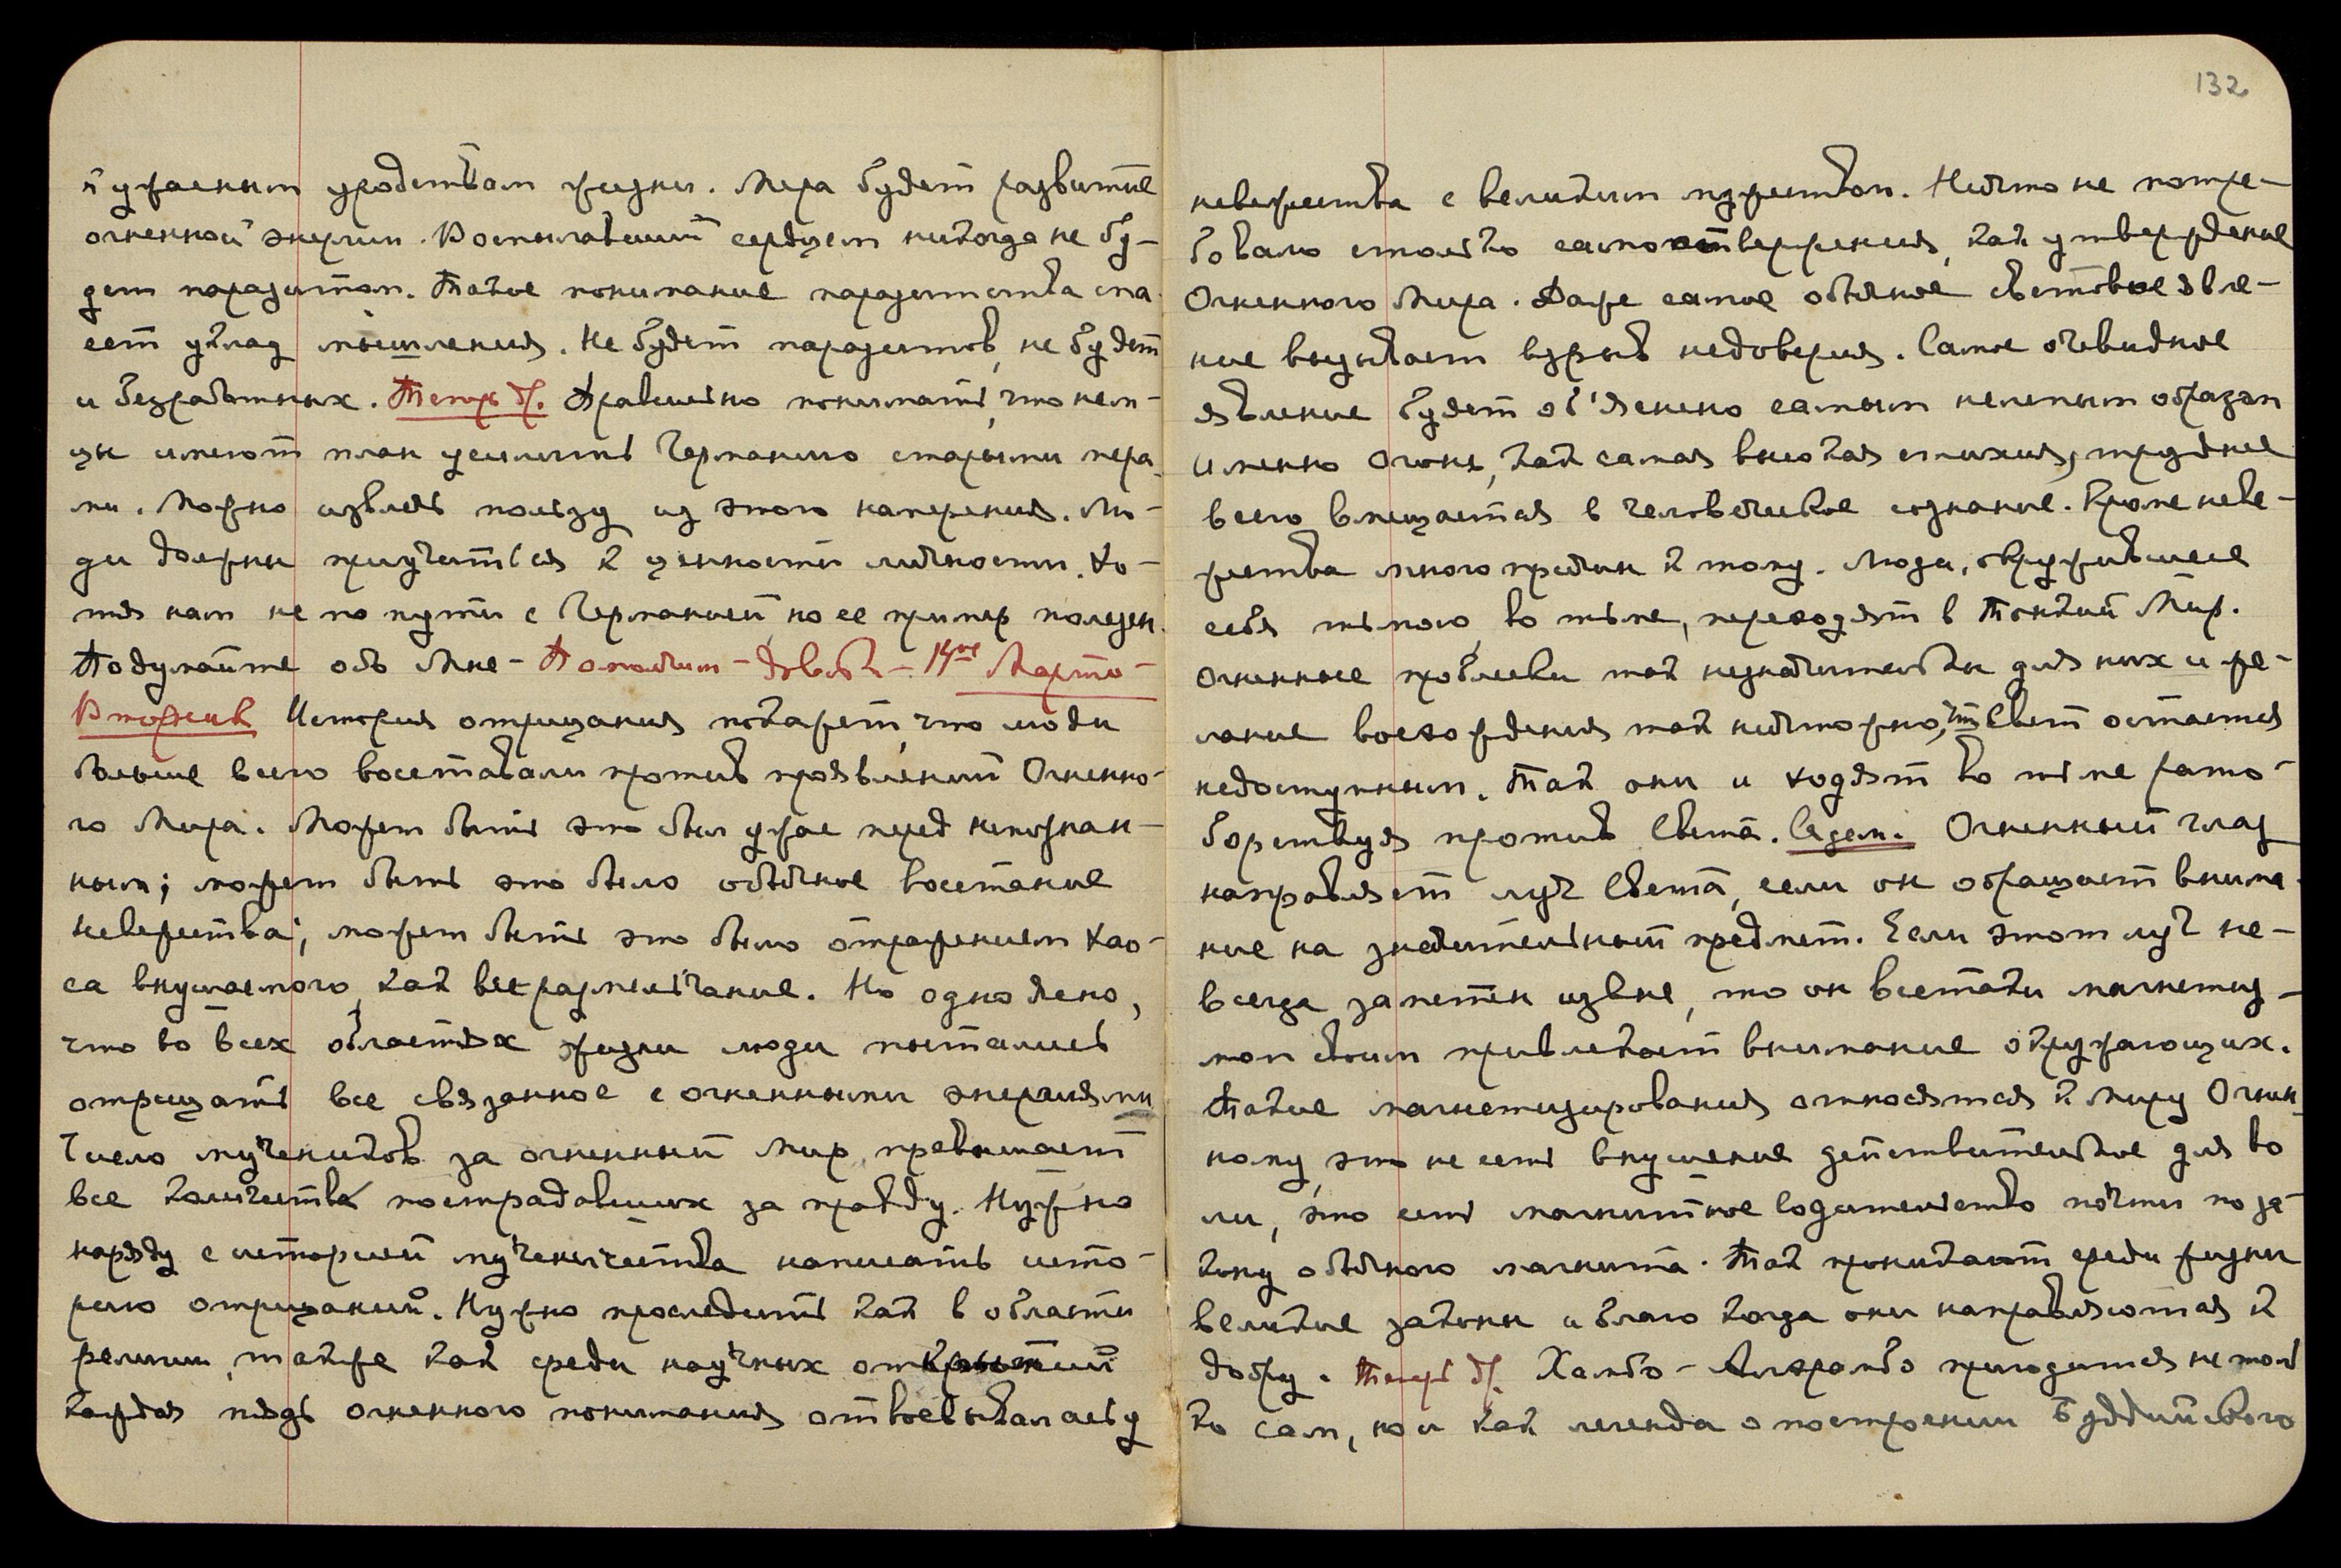 ч ужасным уродством жизни. Мера будет развитие
огненной энергии. Воспылавший сердцем никогда не бу-
дет паразитом. Такое понимание паразитства спа-
ает уклад мышления. Не будет паразитов, не будет
и безработных. Теперь др. Правильно понимать, что нем-
цы имеют план усилить Германию старыми мера-
ми. Можно извлечь пользу из этого намерения. Лю-
ди должны приучиться к ценности личности. Хо-
тя нам не по пути с Германией, но ее пример полезен.
Подумайте обо Мне – Помолчим – Довольно – 14ое Марта –
Вторник История отрицания покажет, что люди
больше всего восставали против проявлений Огненно-
го Мира. Может быть это был ужас перед непознан-
ным; может быть это было обычное восстание
невежества; может быть это было отражением Хао-
са внушаемого, как все размельчание. Но одно ясно,
что во всех областях жизни люди пытались
отрицать все связанное с огненными энергиями
Число мучеников за огненный Мир, превышает
все количества пострадавших за правду. Нужно
наряду с историей мученичества написать исто-
рию отрицаний. Нужно проследить как в области
религии, также как среди научных открытий
каждая пядь огненного понимания отвоевывалась у
132
невежества с великим мужеством. Ничто не потре-
бовало столько самоотвержения, как утверждение
Огненного Мира. Даже самое обычное световое явле-
ние вызывает взрыв недоверия. Самое очевидное
явление будет об'яснено самым нелепым образом
Именно Огонь, как самая высокая стихия, труднее
всего вмещается в человеческое сознание. Кроме неве-
жества много причин к тому. Люди, окружившие
себя тьмою, во тьме, переходят в Тонкий Мир.
Огненные проблески так незначительны для них и же-
лание восхождения так ничтожно, что Свет остается
недоступным. Так они и ходят во тьме рато-
борствуя против Света. Седем. Огненный глаз
направляет луч Света, если он обращает внима-
ние на значительный предмет. Если этот луч не-
всегда заметен извне, то он всетаки магнетиз-
мом своим привлекает внимание окружающих.
Такие магнетизирования относятся к Миру Огнен-
ному, это не есть внушение действительное для во
ли, это есть магнитное водительство почти по за-
кону обычного магнита. Так проникают среди жизни
великие законы и благо когда они направляются к
добру. Теперь др. Хамбо – пригодится не толь
ко сам, но и как легенда о построении Буддийского